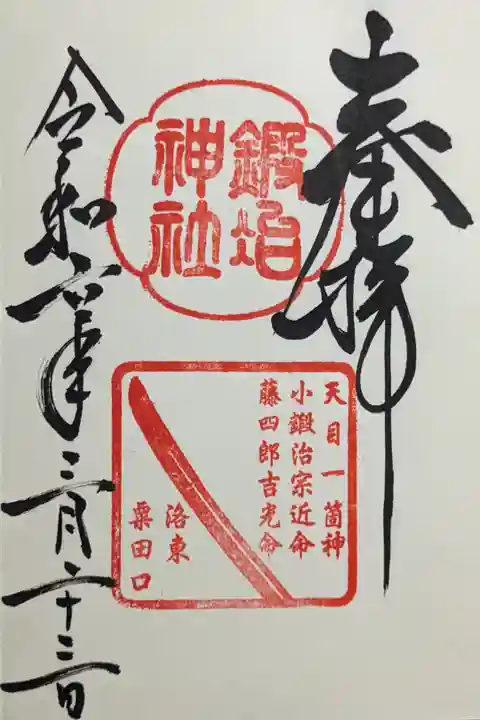 奉拝
鍛冶
神社
天目一箇神
小鍛治宗近命
藤四郎吉光命
洛東
粟田口
令和六年三月二十三日